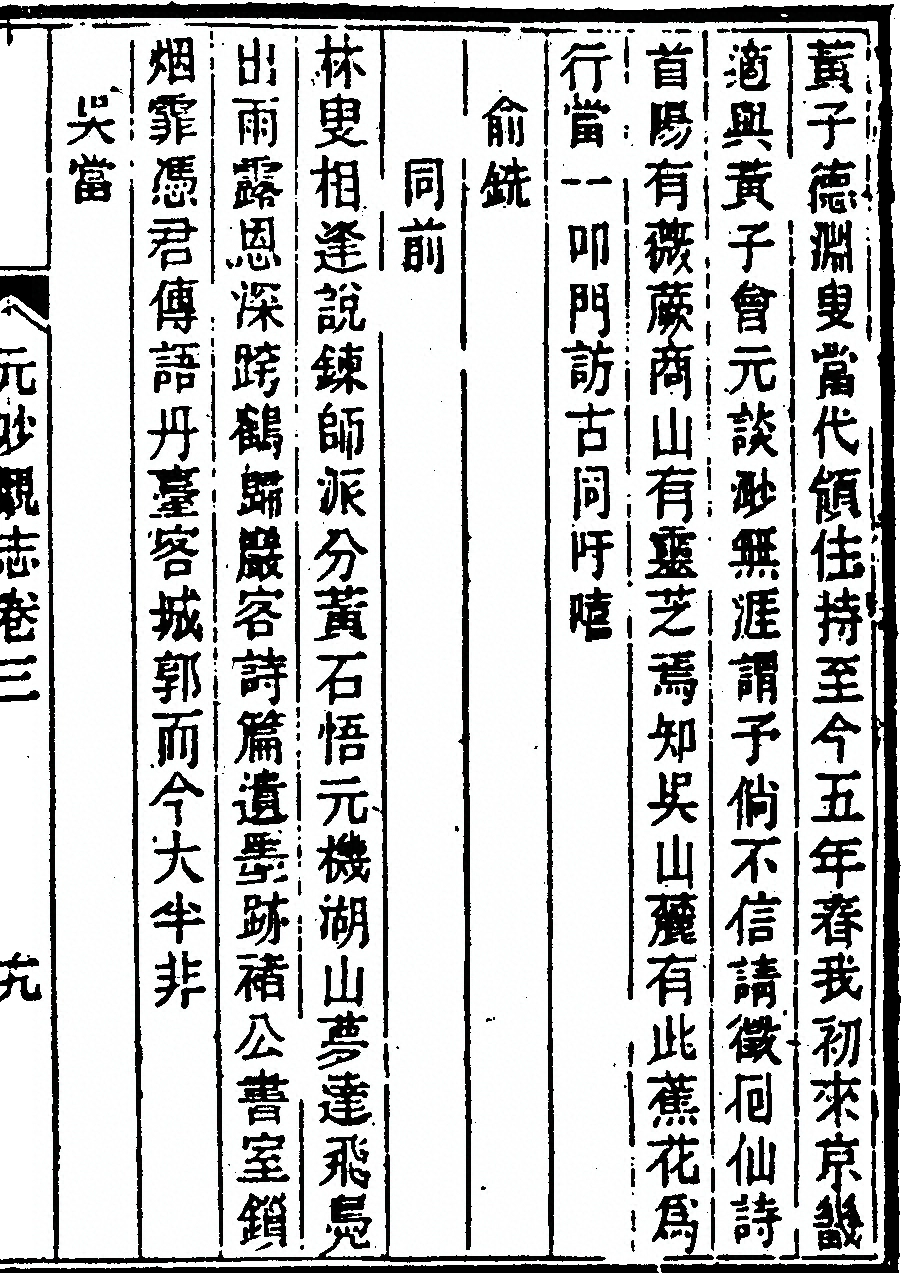 黃子德淵叟當代領住持至今五年春我初來京畿
適與黃子會元談渺無涯謂予倘不信請徵回仙詩
首陽有薇蕨商山有靈芝焉知吳山麓有此蕉花爲
行當一叩門訪古同吁嘻
俞銑
同前
林叟相逢說鍊師派分黃石悟元機湖山夢達飛鳧
出雨露恩深跨鶴歸巖客詩篇遺墨跡褚公書室鎖
烟霏憑君傳語丹臺客城郭而今大半非
吳當
元妙觀志卷三
九